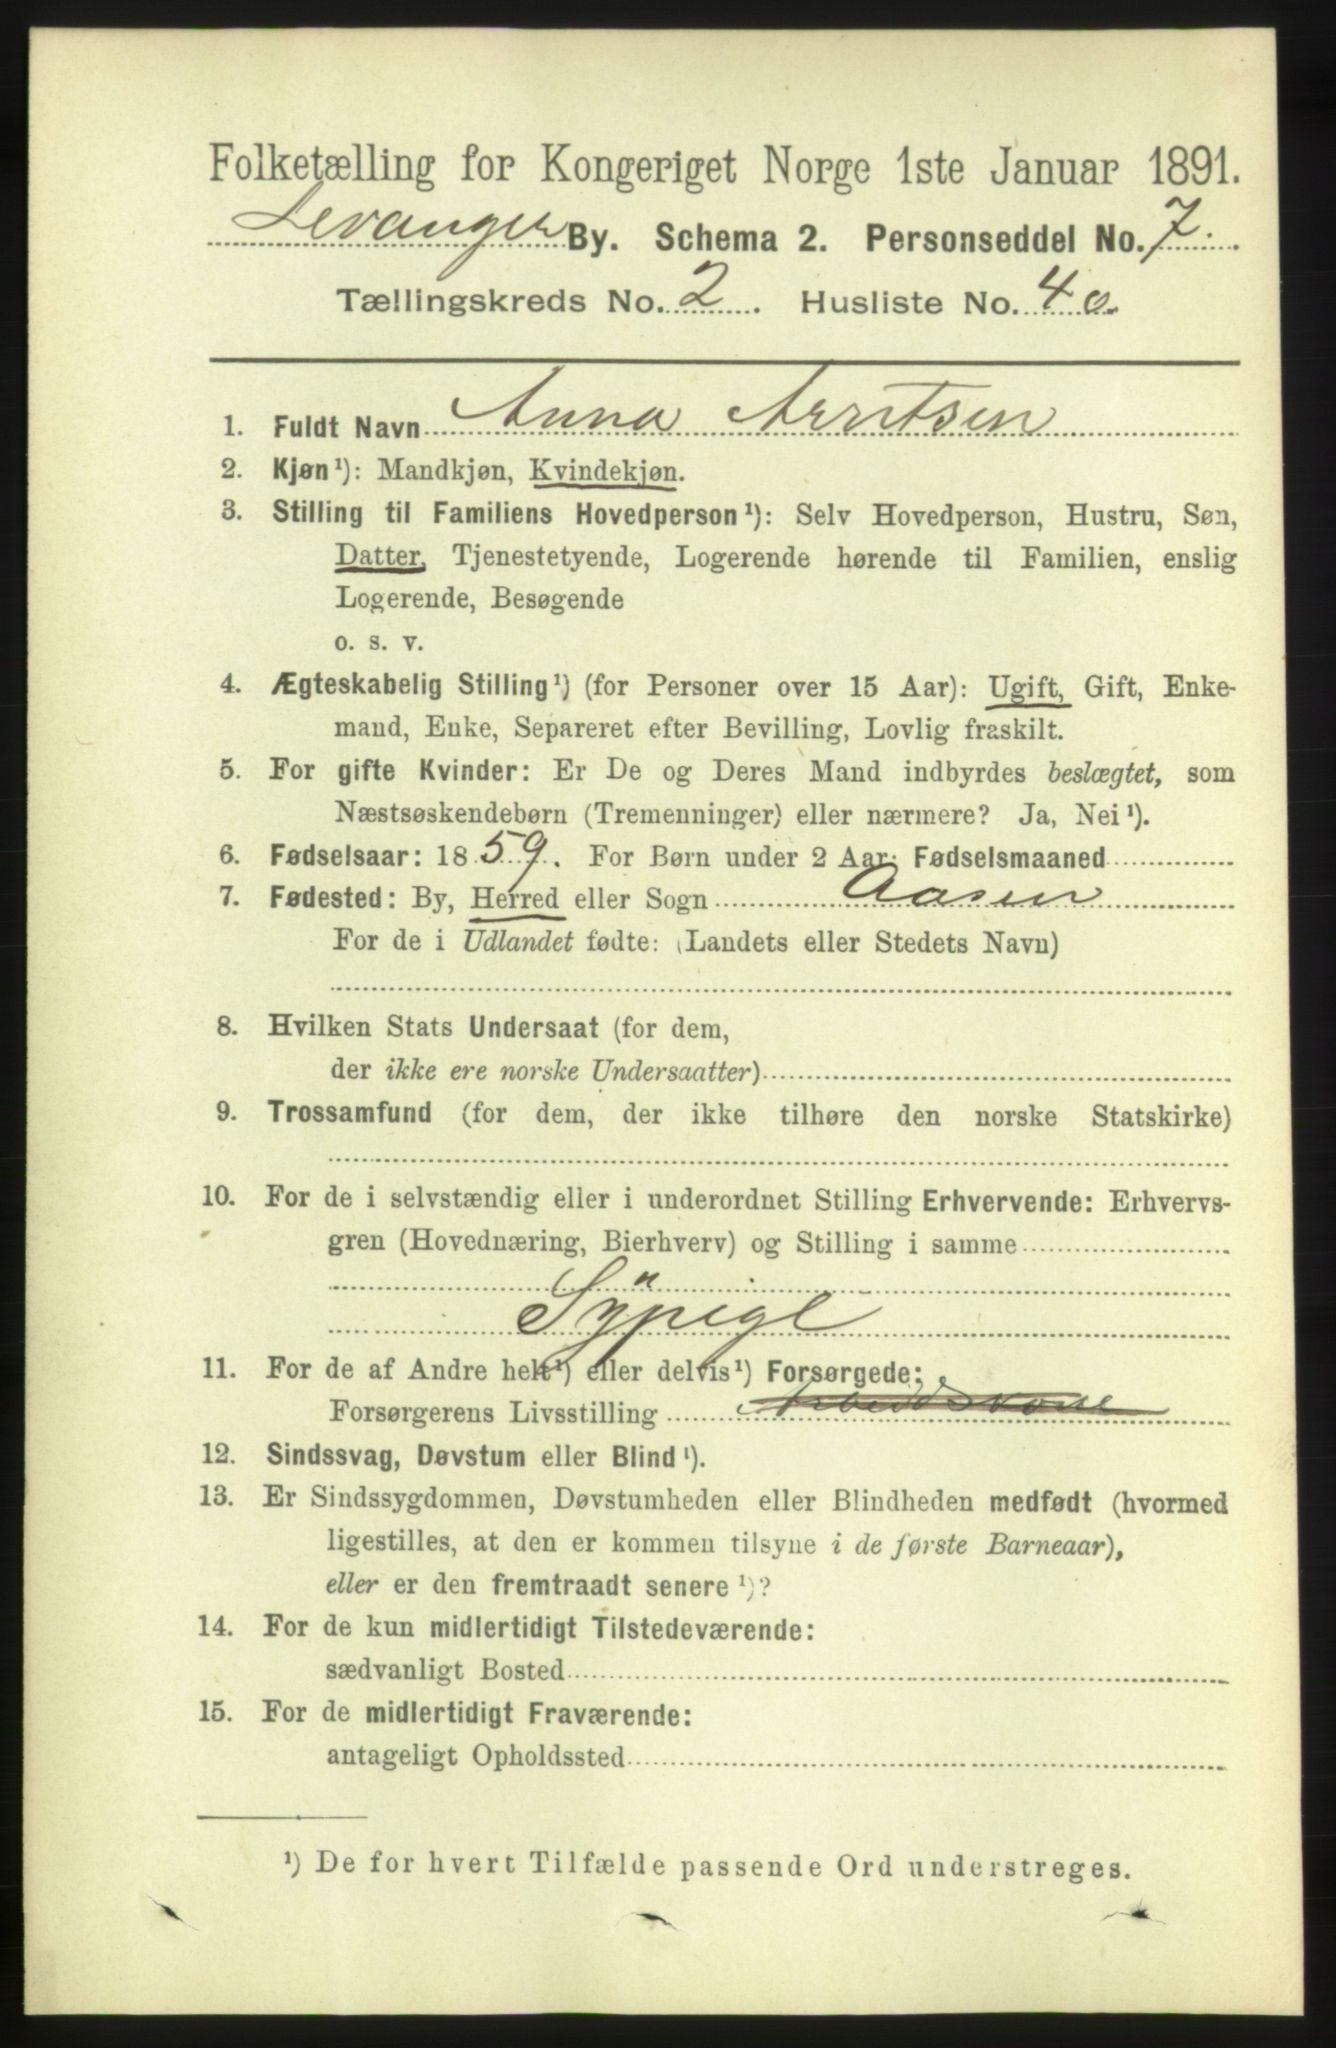 Folketælling for Kongeriget Norge 1ste Januar 1891.
Levanger By. Schema 2. Personseddel No. 7.
Tællingskreds No. 2. Husliste No. 40.
1. Fuldt Navn Anna Arntsen
2. Kjøn¹): Mandkjøn, Kvindekjøn.
3. Stilling til Familiens Hovedperson¹): Selv Hovedperson, Hustru, Søn,
Datter, Tjenestetyende, Logerende hørende til Familien, enslig
Logerende, Besøgende
o. s. v.
4. Ægteskabelig Stilling¹) (for Personer over 15 Aar): Ugift, Gift, Enke-
mand, Enke, Separeret efter Bevilling, Lovlig fraskilt.
5. For gifte Kvinder: Er De og Deres Mand indbyrdes beslægtet, som
Næstsøskendebørn (Tremenninger) eller nærmere? Ja, Nei¹).
6. Fødselsaar: 1859. For Børn under 2 Aar: Fødselsmaaned
7. Fødested: By, Herred eller Sogn Aasen
For de i Udlandet fødte: (Landets eller Stedets Navn)
8. Hvilken Stats Undersaat (for dem,
der ikke ere norske Undersaatter)
9. Trossamfund (for dem, der ikke tilhøre den norske Statskirke)
10. For de i selvstændig eller i underordnet Stilling Erhvervende: Erhvervs-
gren (Hovednæring, Bierhverv) og Stilling i samme
Sypige
11. For de af Andre helt¹) eller delvis¹) Forsørgede:
Forsørgerens Livsstilling Arbeidskone
12. Sindssvag, Døvstum eller Blind¹).
13. Er Sindssygdommen, Døvstumheden eller Blindheden medfødt (hvormed
ligestilles, at den er kommen tilsyne i de første Barneaar),
eller er den fremtraadt senere¹)?
14. For de kun midlertidigt Tilstedeværende:
sædvanligt Bosted
15. For de midlertidigt Fraværende:
antageligt Opholdssted
¹) De for hvert Tilfælde passende Ord understreges.